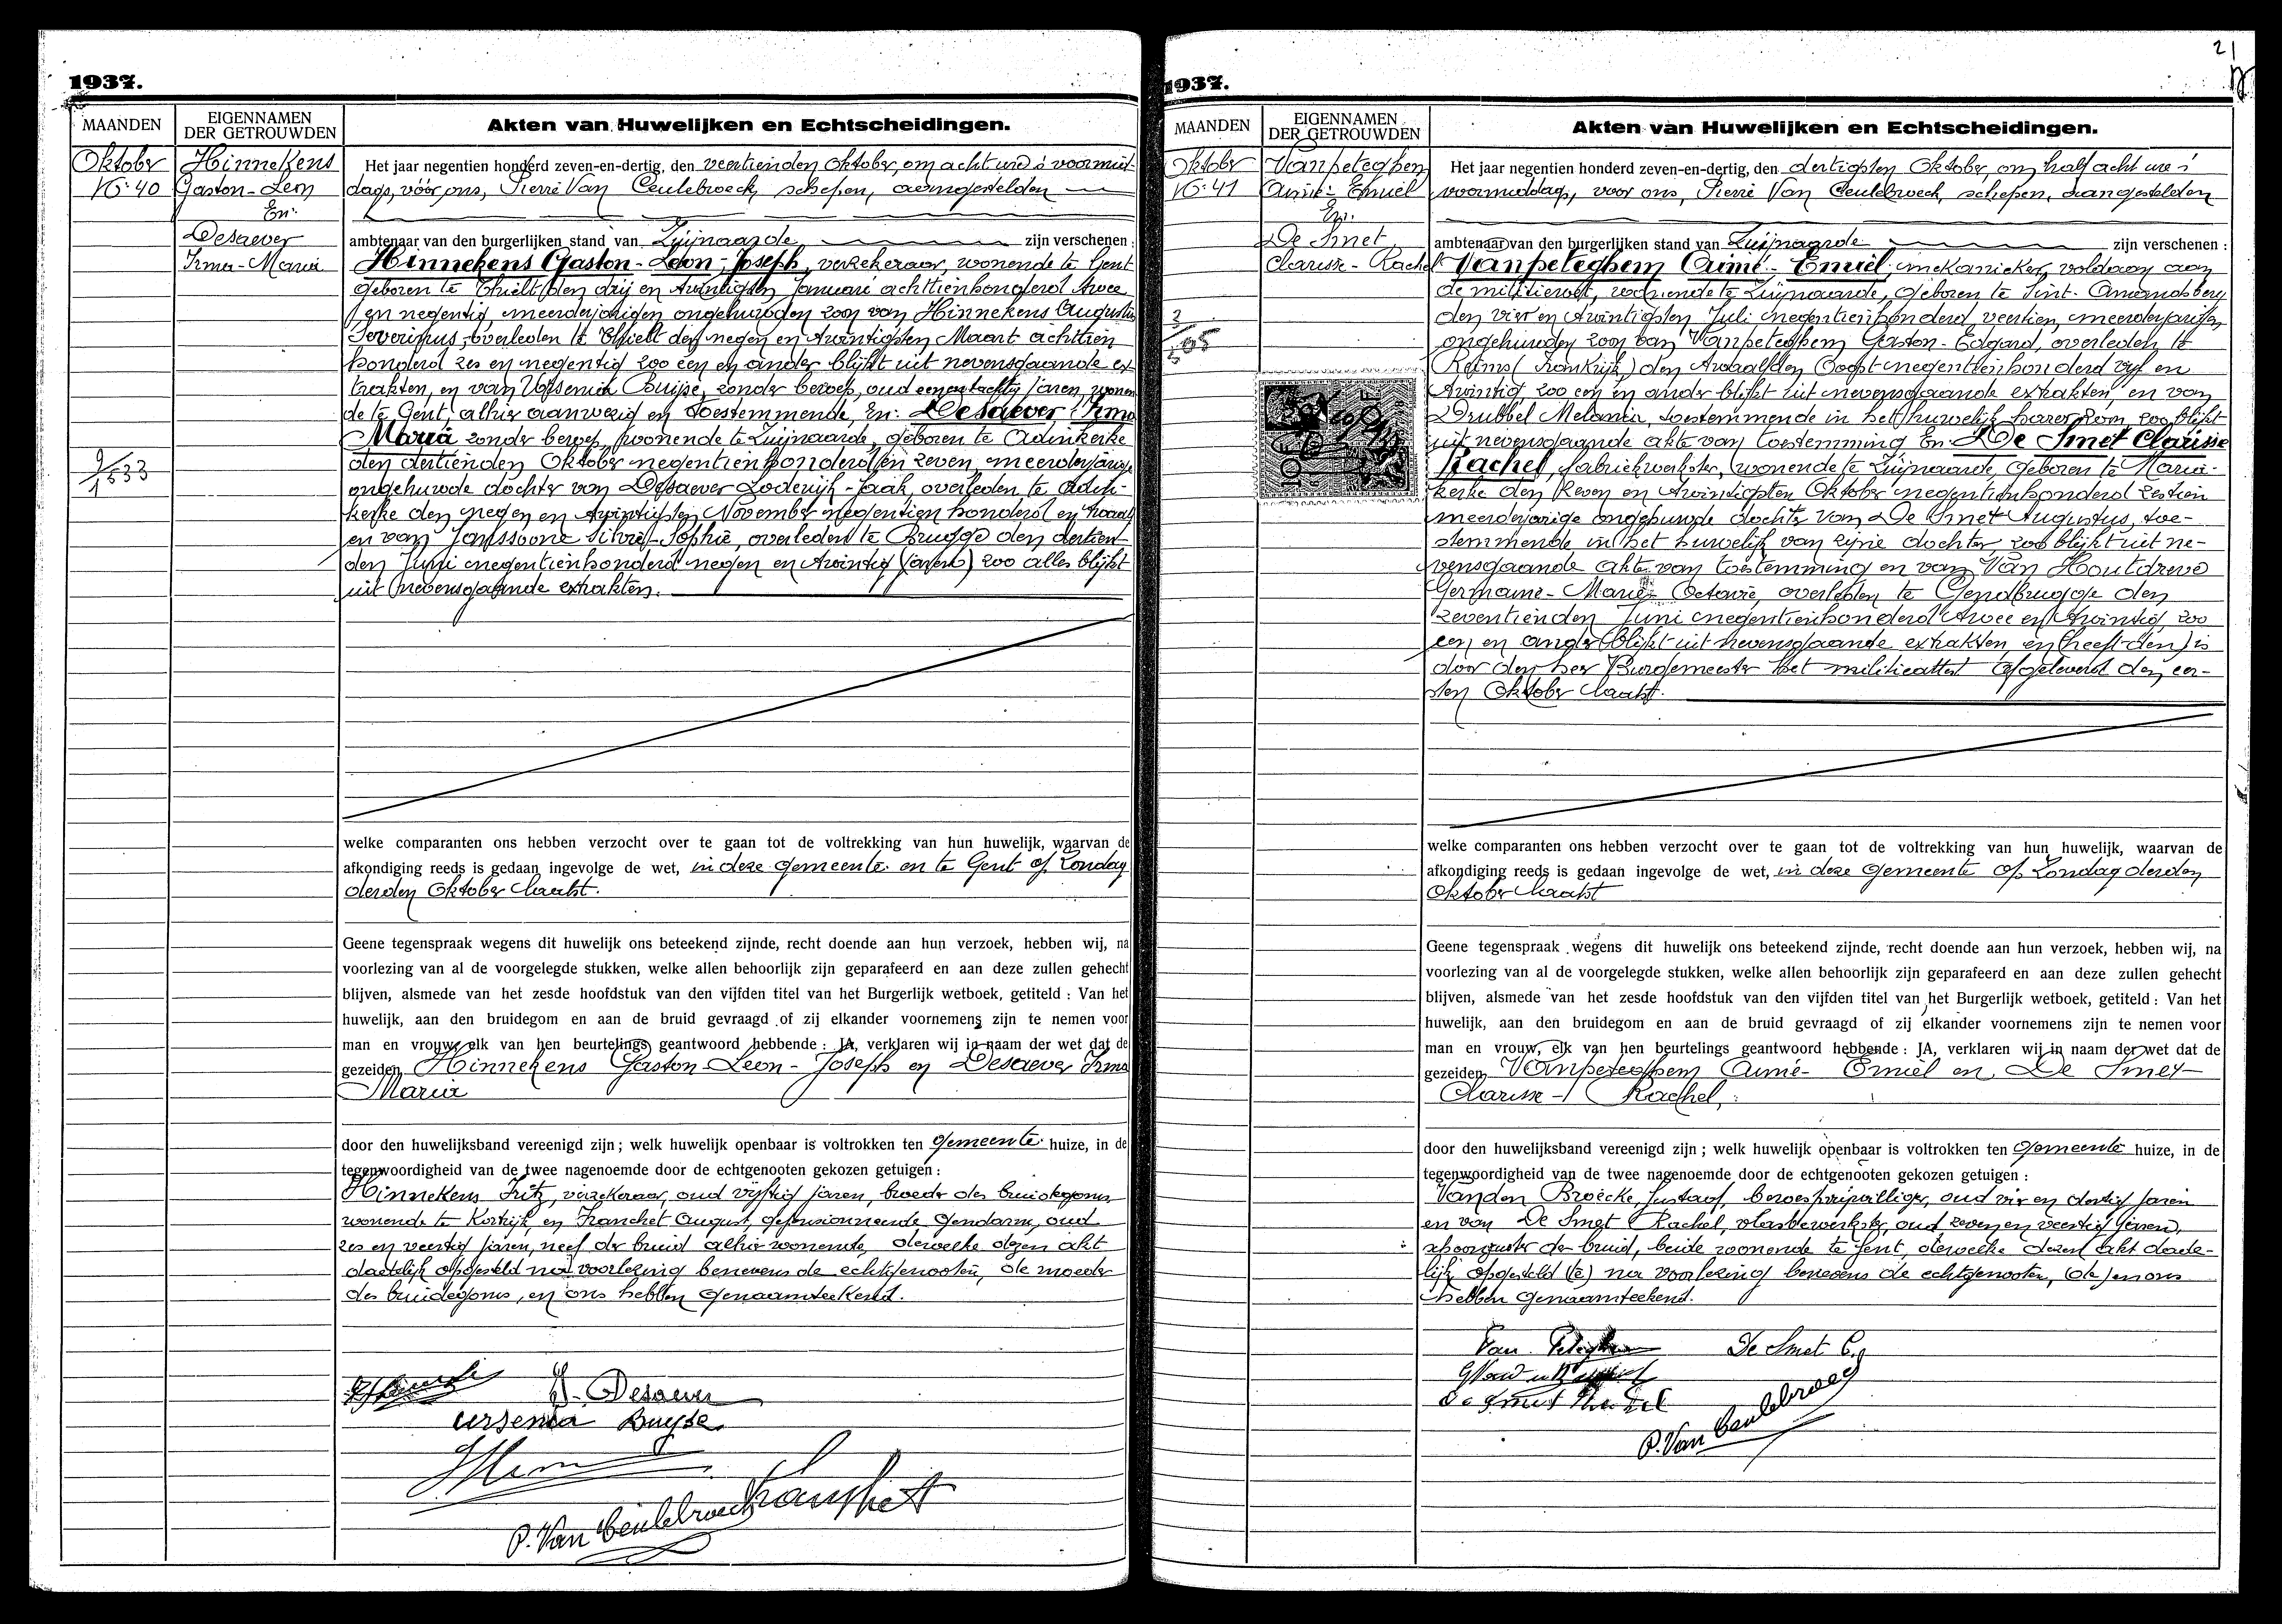 1937.
MAANDEN
EIGENNAMEN
DER GETROUWDEN
Akten van Huwelijken en Echtscheidingen.
Oktober
No. 40
Hinnekens
Gaston-Leon
En:
Desaever
Irma-Maria
9/1533
Het jaar negentien honderd zeven-en-dertig, den veertienden Oktober, om acht ure 's voormid-
dags, vóór ons, Pierre Van Ceulebroeck, schepen, aangestelden
ambtenaar van den burgerlijken stand van Zwijnaarde zijn verschenen :
Hinnekens Gaston-Leon-Joseph, verzekeraar, wonende te Gent
geboren te Thielt den drij en twintigsten Januari achttienhonderd twee
en negentig meerderjarigen ongehuwden zoon van Hinnekens Augustin
Severinus, overleden te Thielt den negen en twintigsten Maart achttien
honderd zes en negentig zoo een en ander blijkt uit nevensgaande ex-
trakten, en van Ursenia Buijse, zonder beroep, oud een en tachtig jaren, wonen
de te Gent, alhier aanwezig en toestemmende, En: Desaever Irma
Maria zonder beroep, wonende te Zwijnaarde, geboren te Adinkerke
den dertienden Oktober negentienhonderd en zeven, meerderjarige
ongehuwde dochter van Desaever Lodewijk-Jaak, overleden te Adin-
kerke den negen en twintigsten November negentien honderd en twaalf
en van Janssoone Silvie-Sophie, overleden te Brugge den dertien
den Juni negentienhonderd negen en twintig (jaren) zoo alles blijkt
uit nevensgaande extrakten.
welke comparanten ons hebben verzocht over te gaan tot de voltrekking van hun huwelijk, waarvan de
afkondiging reeds is gedaan ingevolge de wet, in deze gemeente en te Gent op Zondag
derden Oktober laatst.
Geene tegenspraak wegens dit huwelijk ons beteekend zijnde, recht doende aan hun verzoek, hebben wij, na
voorlezing van al de voorgelegde stukken, welke allen behoorlijk zijn geparafeerd en aan deze zullen gehecht
blijven, alsmede van het zesde hoofdstuk van den vijfden titel van het Burgerlijk wetboek, getiteld : Van het
huwelijk, aan den bruidegom en aan de bruid gevraagd of zij elkander voornemens zijn te nemen voor
man en vrouw, elk van hen beurtelings geantwoord hebbende : JA, verklaren wij in naam der wet dat de
gezeiden Hinnekens Gaston-Leon-Joseph en Desaever Irma
Maria
door den huwelijksband vereenigd zijn ; welk huwelijk openbaar is voltrokken ten gemeente huize, in de
tegenwoordigheid van de twee nagenoemde door de echtgenooten gekozen getuigen :
Hinnekens Fritz, verzekeraar, oud vijftig jaren, broeder des bruidegoms,
wonende te Kortrijk, en Franchet August, gepensionneerde gendarm, oud
zes en veertig jaren, neef der bruid alhier wonende, dewelke dezen akt
dadelijk opgesteld na voorlezing benevens de echtgenooten, de moeder
des bruidegoms, en ons hebben genaamteekend.
Desaever
Ursenia Buyse
Franchet
P. Van Ceulebroeck
21
1937.
MAANDEN
EIGENNAMEN
DER GETROUWDEN
Akten van Huwelijken en Echtscheidingen.
Oktober
No. 41
Vanpeteghem
Aimé-Emiel
En.
De Smet
Clarisse-Rachel
Het jaar negentien honderd zeven-en-dertig, den dertigsten Oktober, om half acht ure 's
voormiddags, voor ons, Pierre Van Ceulebroeck, schepen, aangestelden
ambtenaar van den burgerlijken stand van Zwijnaarde zijn verschenen :
Vanpeteghem Aimé-Emiel, mekanieker, voldaan aan
de militiewet, wonende te Zwijnaarde, geboren te Sint-Amandsberg
den vier en twintigsten Juli negentienhonderd veertien, meerderjarigen
ongehuwden zoon van Vanpeteghem Gaston-Edgard, overleden te
Reims (Frankrijk) den twaalfden Oogst negentienhonderd vijf en
twintig, zoo een en ander blijkt uit nevensgaande extrakten, en van
Drubbel Melania, toestemmende in het huwelijk harer zoon zoo blijkt
uit nevensgaande akte van toestemming En: De Smet Clarisse
Rachel, fabriekwerkster, wonende te Zwijnaarde, geboren te Maria-
kerke den zeven en twintigsten Oktober negentienhonderd zestien
meerderjarige ongehuwde dochter van De Smet Augustus, toe-
stemmende in het huwelijk van zijne dochter zoo blijkt uit ne-
vensgaande akte van toestemming en van Van Houtdreve
Germaine-Marie-Octavie, overleden te Gendbrugge den
zeventienden Juni negentienhonderd twee en twintig, zoo
een en ander blijkt uit nevensgaande extrakten, en (heeft den) is
door den heer Burgemeester het militieattest afgeleverd den eer-
sten Oktober laatst.
welke comparanten ons hebben verzocht over te gaan tot de voltrekking van hun huwelijk, waarvan de
afkondiging reeds is gedaan ingevolge de wet, in deze gemeente op Zondag derden
Oktober laatst
Geene tegenspraak wegens dit huwelijk ons beteekend zijnde, recht doende aan hun verzoek, hebben wij, na
voorlezing van al de voorgelegde stukken, welke allen behoorlijk zijn geparafeerd en aan deze zullen gehecht
blijven, alsmede van het zesde hoofdstuk van den vijfden titel van het Burgerlijk wetboek, getiteld : Van het
huwelijk, aan den bruidegom en aan de bruid gevraagd of zij elkander voornemens zijn te nemen voor
man en vrouw, elk van hen beurtelings geantwoord hebbende : JA, verklaren wij in naam der wet dat de
gezeiden Vanpeteghem Aimé-Emiel en De Smet
Clarisse-Rachel,
door den huwelijksband vereenigd zijn ; welk huwelijk openbaar is voltrokken ten gemeente huize, in de
tegenwoordigheid van de twee nagenoemde door de echtgenooten gekozen getuigen :
Vanden Broecke Gustaaf, beroepsvrijwilliger, oud vier en dertig jaren
en van De Smet Rachel, vlasbewerkster, oud zeven en veertig jaren,
schoonzuster der bruid, beide wonende te Gent, dewelke dezen akt dade-
lijk opgesteld (te) na voorlezing benevens de echtgenooten, (de) en ons
hebben genaamteekend.
Van Peteghem De Smet C.
De Smet Rachel
P. Van Ceulebroeck